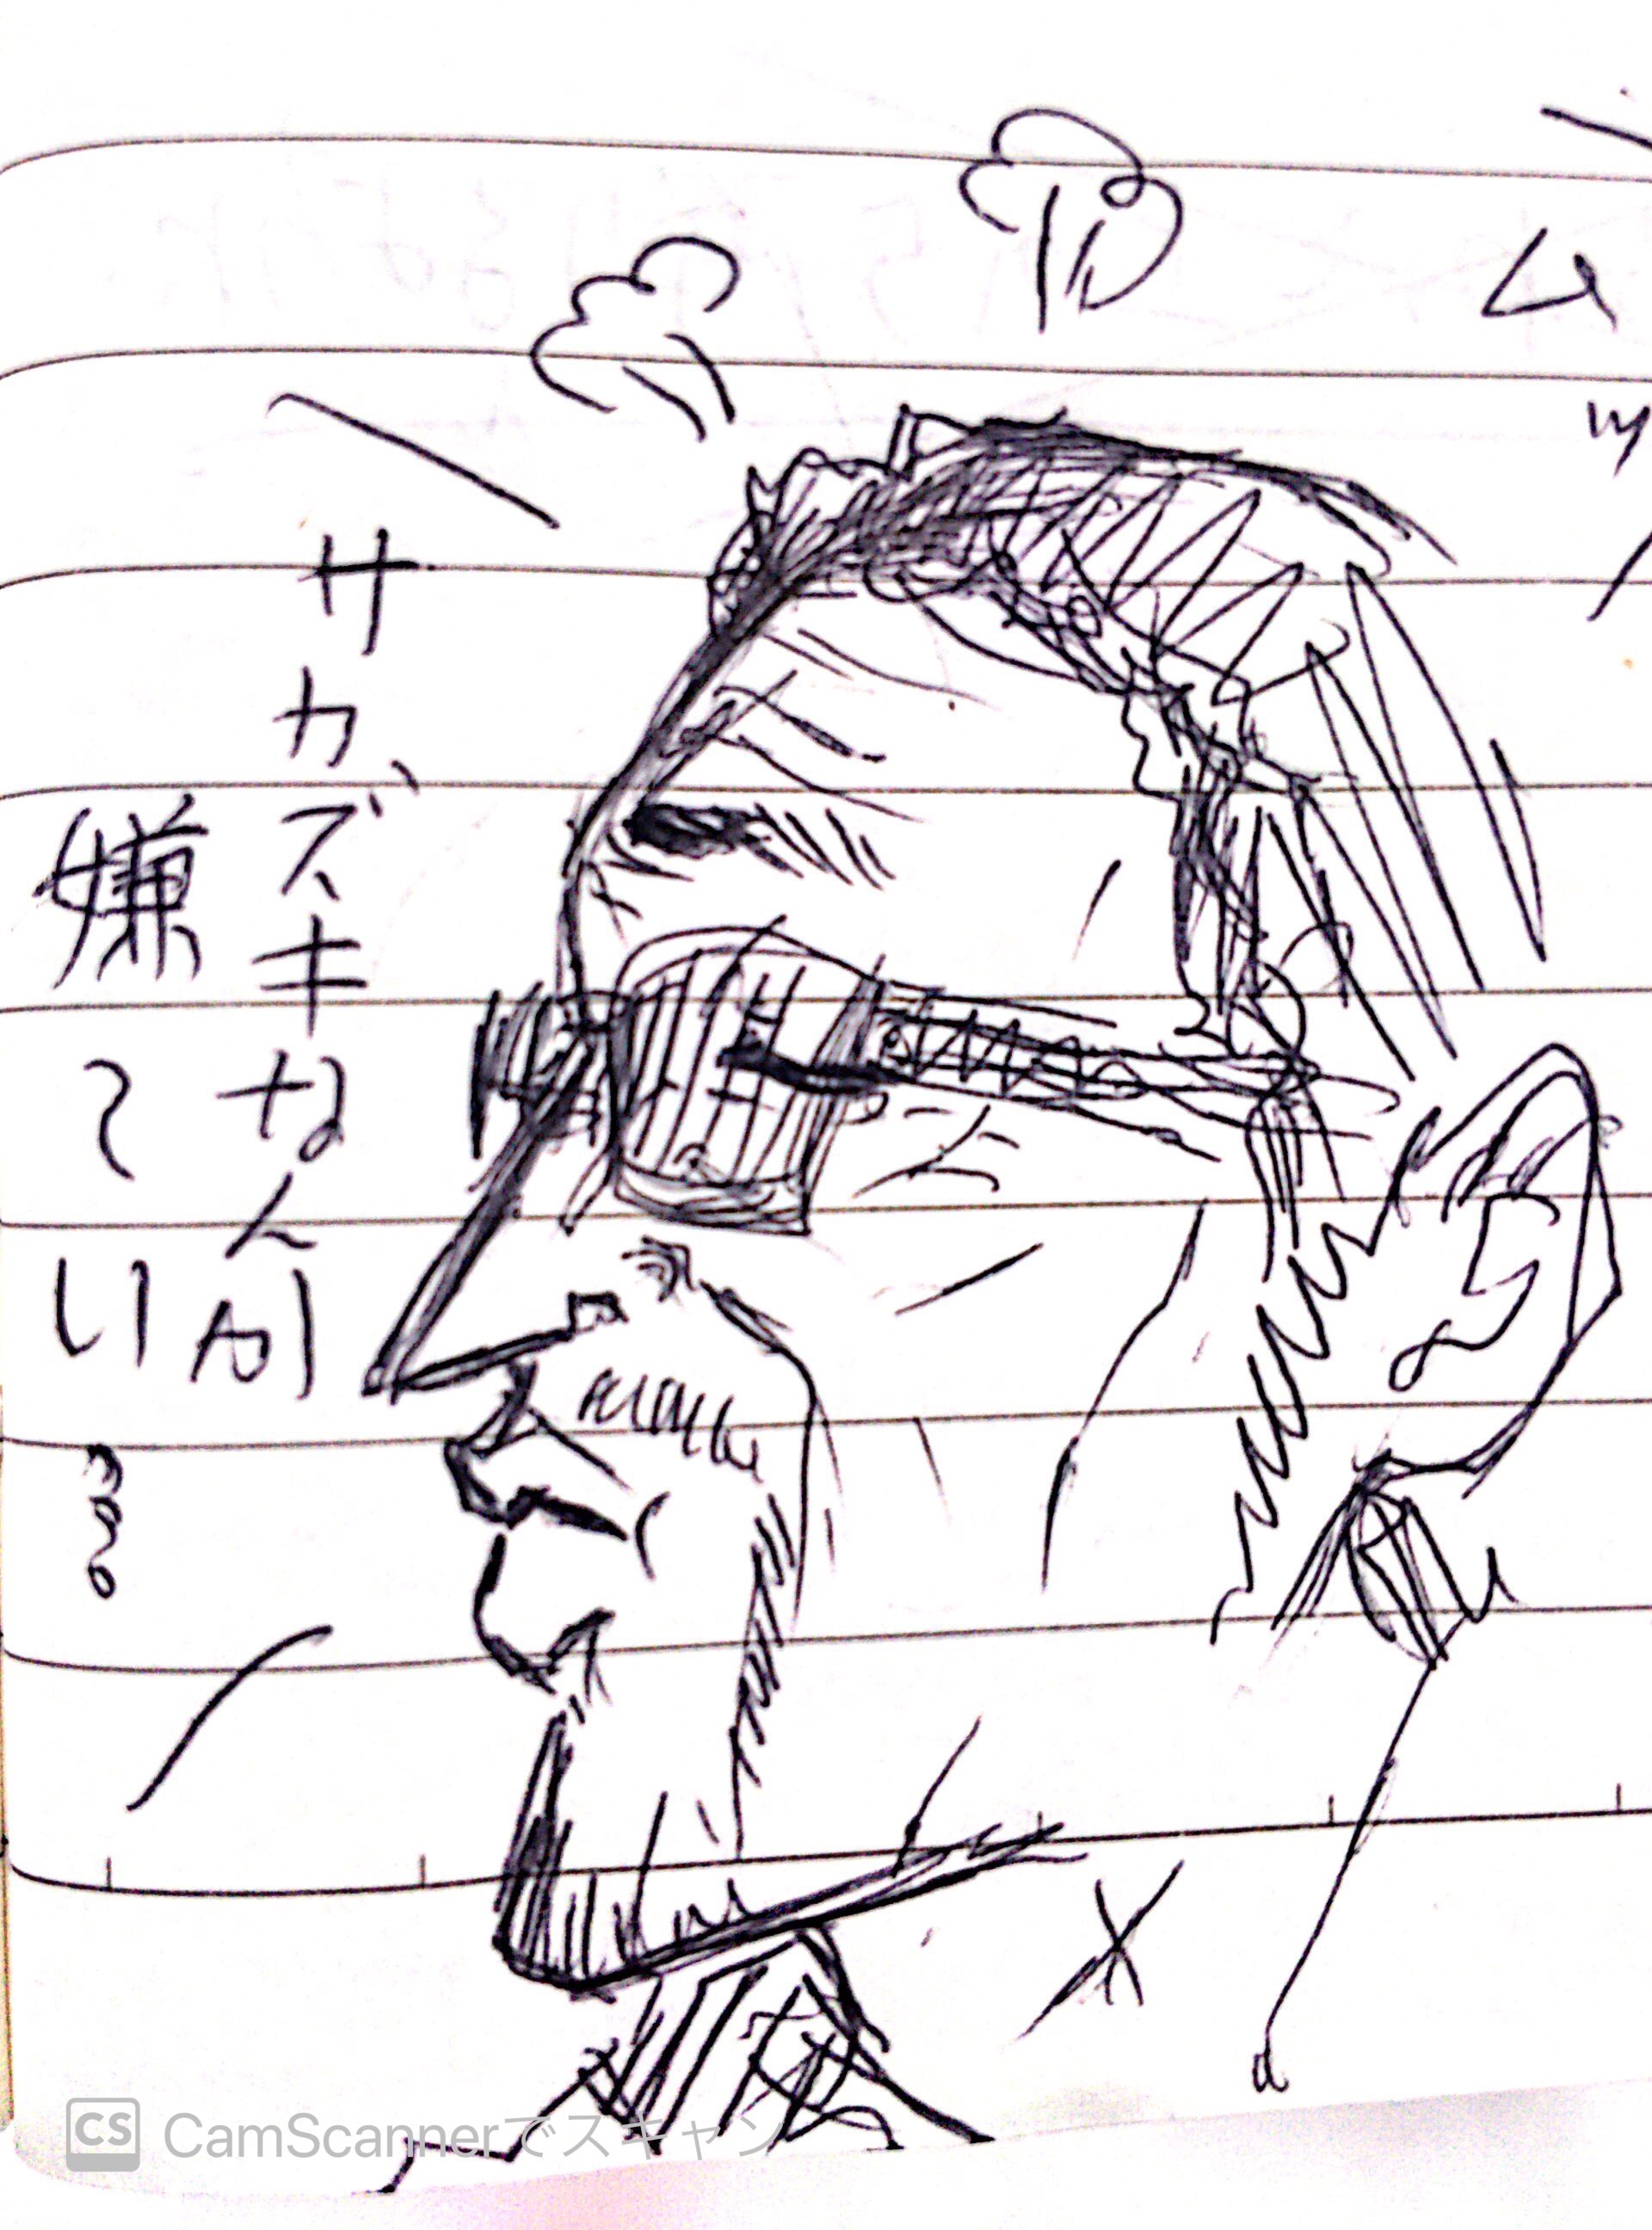 ムッ
サカズキなんか
嫌てい
CS CamScannerでスキャン